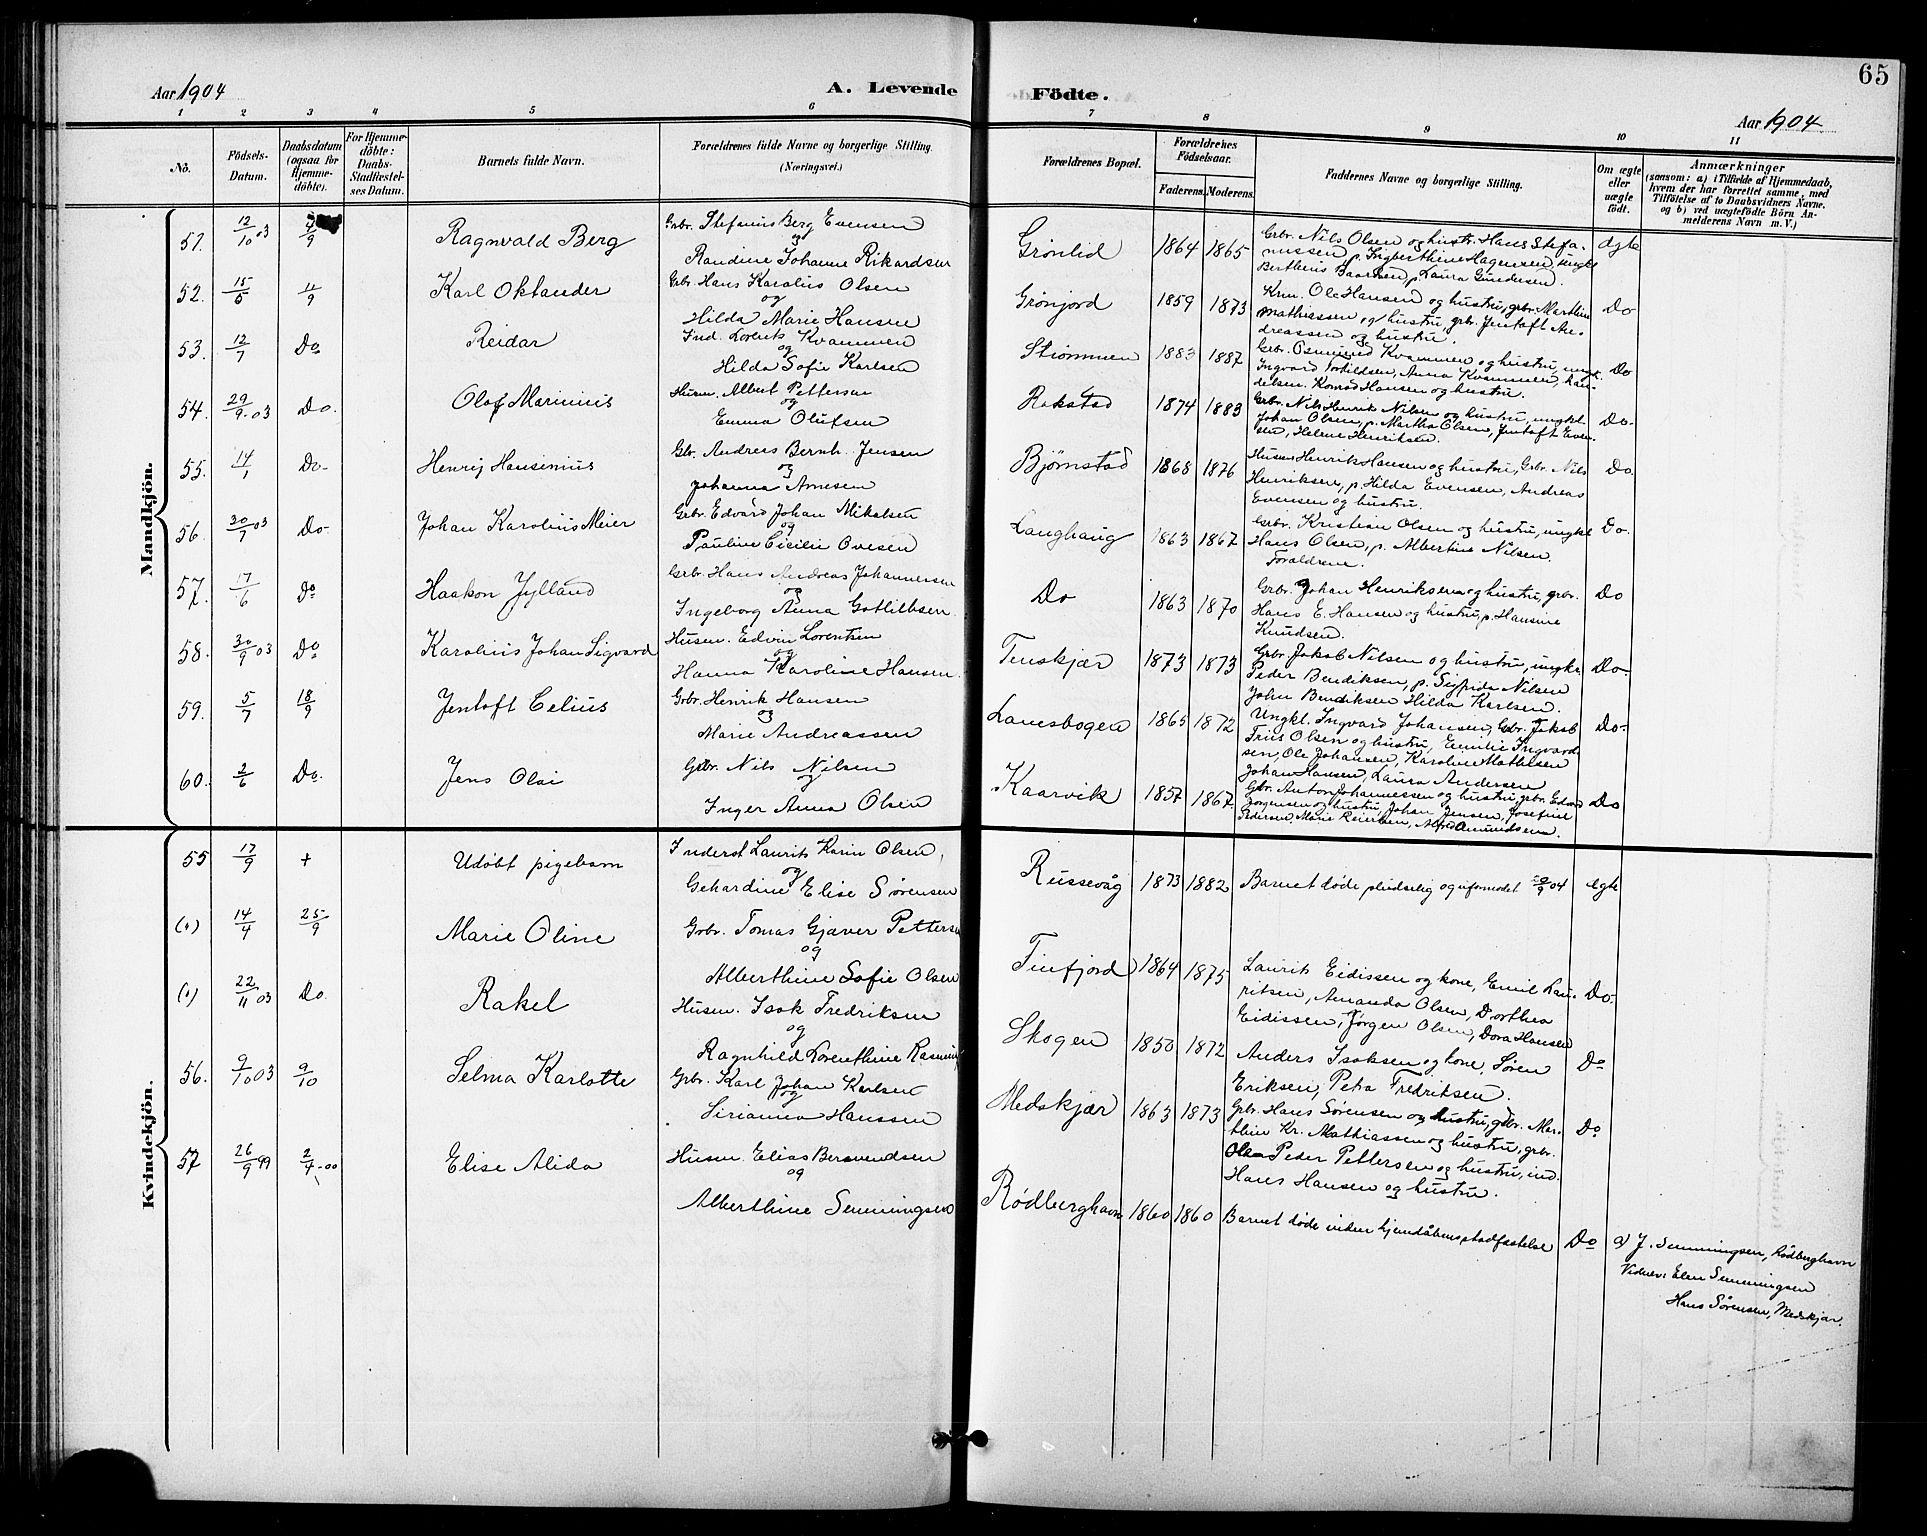 65
Aar 1904
A. Levende
Födte.
Aar 1904
1 2 3 4 5 6 7 8 9 10 11
No.
Födsels-
Datum.
Daabsdatum
(ogsaa for
Hjemme-
döbte).
For Hjemme-
döbte:
Daabs-
Stadfestel-
ses Datum.
Barnets fulde Navn.
Forældrenes fulde Navne og borgerlige Stilling.
(Næringsvei.)
Forældrenes Bopæl.
Forældrenes
Födselsaar.
Faderens. Moderens.
Faddernes Navne og borgerlige Stilling.
Om ægte
eller
uægte
födt.
Anmærkninger
(saasom: a) i Tilfælde af Hjemmedaab,
hvem der har forrettet samme, med
Tilföielse af to Daabsvidners Navne,
og b) ved uægtefödte Börn An-
melderens Navn m. V.)
Mandkjön.
51. 12/10 03 4/9 Ragnvald Berg
Grbr. Stefanus Berg Evensen
og
Randine Johanne Rikardsen
Grønlid 1864 1865
Grbr. Nils Olsen og hustr. Hans Stefa-
nussen, p. Ingberthine Hagensen, ungkl
Berthius Baardsen, p. Laura Gundersen.
ægte
52. 15/5 11/9 Karl Oktander
Grbr. Hans Karolius Olsen
og
Hilda Marie Hansen
Grønjord 1859 1873
Krm. Ole Hansen og hustru, grbr. Marthin
Mathiassen og hustru, grbr. Jentoft An-
dreassen og hustru.
Do
53. 12/7 Do Reidar
Ind. Lorents Kvammen
og
Hilda Sofie Karlsen
Strømmen 1883 1887
Grbr. Osmund Kvammen og hustru, ungk.
Ingvard Torkildsen, Anna Kvammen, han-
delsm. Konrad Hansen og hustru.
Do
54. 29/9 03 Do. Olaf Marinius
Husm. Albert Pettersen
og
Emma Olufsen
Rakstad 1874 1883
Grbr. Nils Henrik Nilsen og hustru, ungkl.
Johan Olsen, p. Martha Olsen, Jentoft Even-
sen, Helene Henriksen.
Do-
55. 14/1 Do- Henrij Hansinius
Gbr. Andreas Bernh. Jensen
og
Johanna Arnesen
Bjørnstad 1868 1876
Husm Henrik Hansen og hustru, Grbr. Nils
Henriksen, p. Hilda Evensen, Andreas
Evensen og hustru.
Do.
56. 30/7 03 Do- Johan Karolius Meier
Grbr. Edvard Johan Mikalsen
og
Pauline Cicilie Ovesen
Langhaug 1863 1867
Grbr. Kristian Olsen og hustru, ungkl
Hans Olsen, p. Albertine Nilsen.
Forældrene.
Do.
57. 17/6 Do Haakon Jylland
Grbr. Hans Andreas Johannesen
og
Ingeborg Anna Gotlibsen.
Do 1863 1870
Grbr. Johan Henriksen og hustru, grbr.
Hans E. Hansen og hustru, p. Hansine
Knudsen.
Do
58. 30/9 03 Do Karolius Johan Sigvard
Husm. Edvin Lorentsen
og
Hanna Karoline Hansen.
Tenskjær 1873 1873
Grbr. Jakob Nilsen og hustru, ungkr.
Peder Bendiksen, p. Sigfrida Nilsen
John Bendiksen Hilda Karlsen.
Do-
59. 5/7 18/9 Jentoft Celius
Grbr. Henrik Hansen
og
Marie Andreassen
Lanesbogen 1865 1872
Ungkl. Ingvard Johansen, Grbr. Jakob
Friis Olsen og hustru, Emilie Ingvard
sen, Ole Johansen, Karoline Mathisen
Do-
60. 2/6 Do. Jens Olai
Grbr. Nils Nilsen
og
Inger Anna Olsen
Kaarvik 1857 1867
Johan Hansen, Laura Andersen
Gbr. Anton Johannessen og hustru, grbr. Edvard
Jørgensen og hustru, Johan Jensen, Josefine
Pedersen, Marie Reiertsen, Alfr. Amundsen.
Do
Kvindekjön.
55 17/9 + Udöbt pigebarn
Inderst Laurits Karin Olsen,
og
Gehardine Elise Sørensen
Russevåg 1873 1882
Barnet døde pludselig og uformodet 04
ægte
(1) 14/4 25/9 Marie Oline
Grbr. Tomas Gjæver Petters
og
Alberthine Sofie Olsen
Finfjord 1864 1875
Laurits Eidissen og kone, Emil Lau-
ritsen, Amanda Olsen, Dorthea
Eidissen, Jørgen Olsen, Dora Hansen
Do.
(1) 22/11 03 Do. Rakel
Husm. Isak Fredriksen
og
Ragnhild Lorenthine Rasmus
Skogen 1850 1872
Anders Isaksen og kone, Søren
Eriksen, Petra Fredriksen.
Do
56. 9/10 03 9/10 Selma Karlotte
Grbr. Karl Johan Karlsen
og
Sirianna Hanssen
Medskjær 1863 1873
Grbr. Hans Sørensen og hustru, grbr. Mar-
thin Kr. Mathiassen og hustru, grbr.
Ole Peder Pettersen og hustru, ind.
Hans Hansen og hustru.
Do
57 26/9 99 2/4-00 Elise Alida
Husm. Elias Berntendsen
og
Alberthine Semmingsen
Rødberghavn 1860 1860
Barnet døde inden hjemdåbens stadfæstelse
Do
a) J. Semmingsen, Rødberghavn
Vidner: Elen Semmingsen
Hans Sørensen, Medskjær.